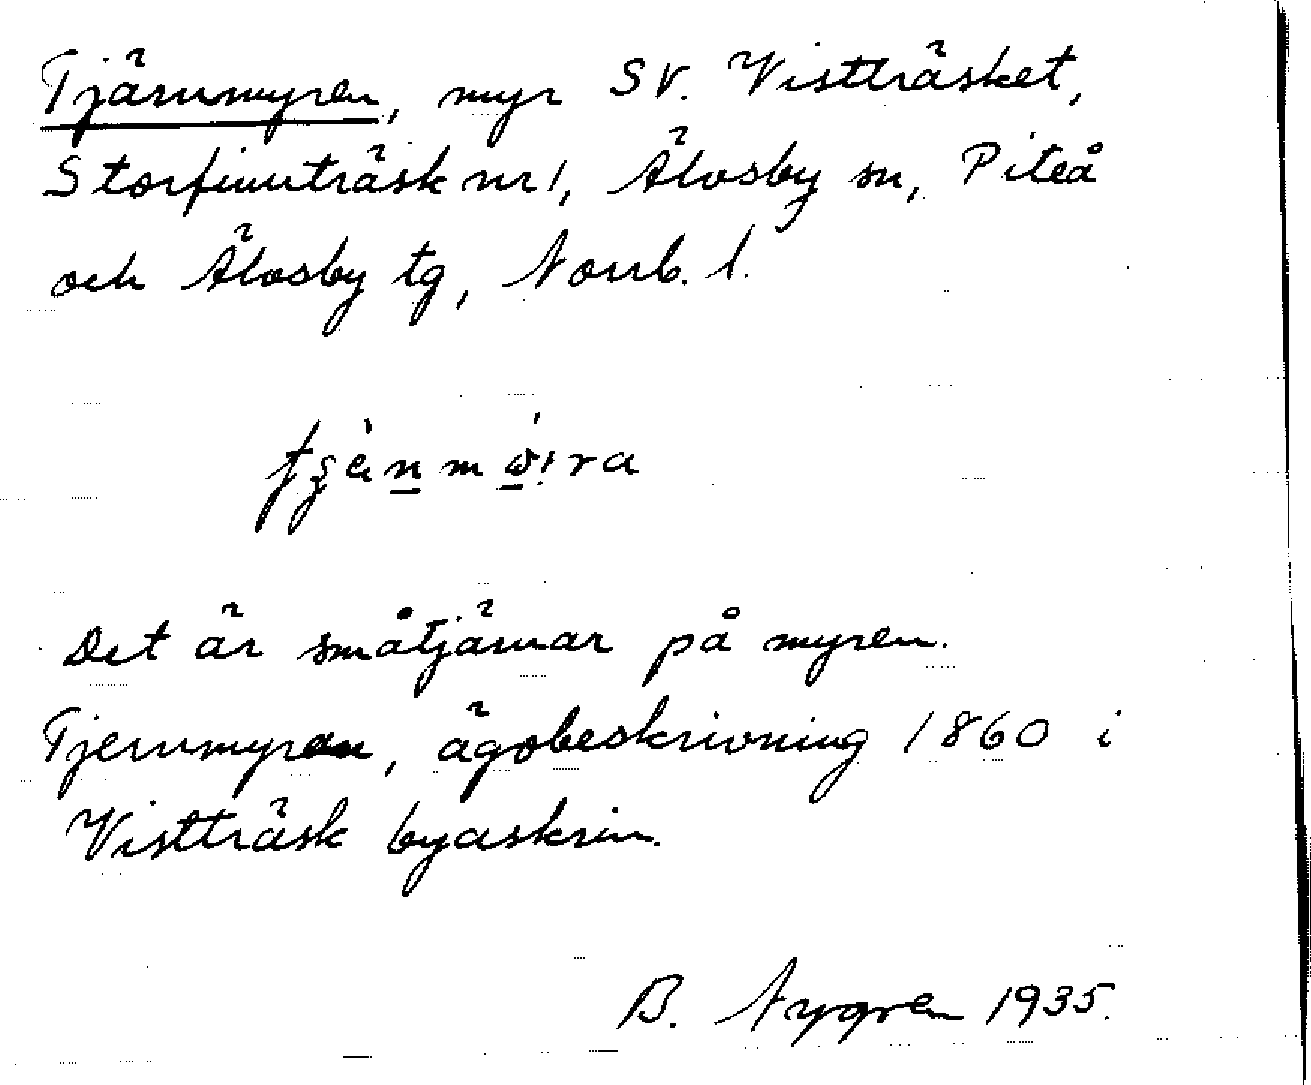 Tjärnmyren, myr SV. Vistträsket,
Storfinnträsk nr 1, Älvsby sn, Piteå
och Älvsby tg, Norrb. l.
Det är småtjärnar på myren.
Tjernmyran, ägobeskrivning 1860 i
Vistträsk byaskrin.
B. Nygren 1935.